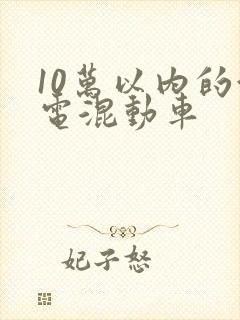 10萬以內的
電混動車
妃子怒